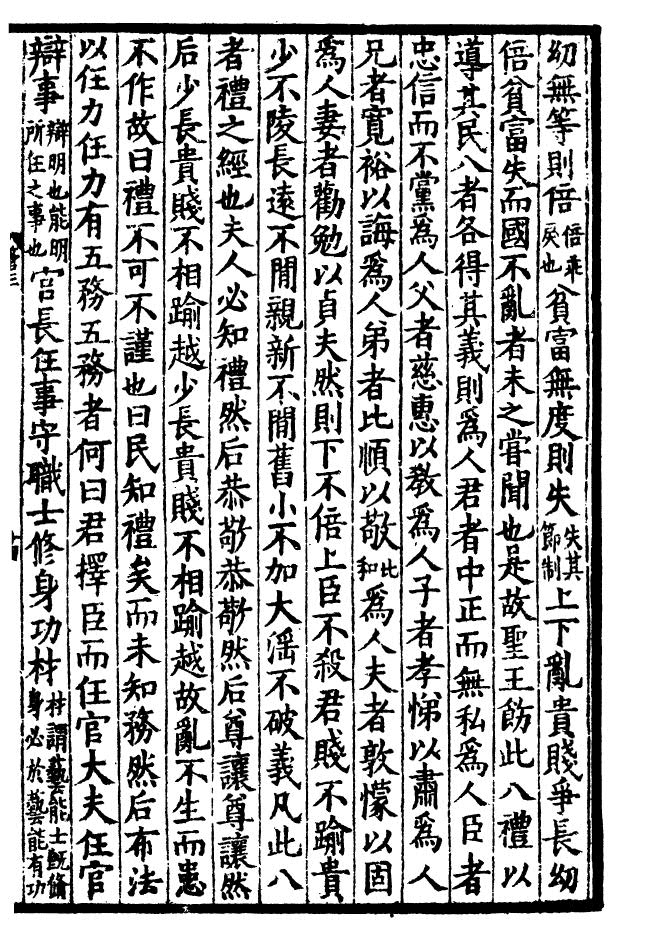 幼無等則倍倍乖戾也貧富無度則失失其節制上下亂貴賤爭長幼
倍貧富失而國不亂者未之嘗聞也是故聖王飭此八禮以
導其民八者各得其義則爲人君者中正而無私爲人臣者
忠信而不黨爲人父者慈惠以教爲人子者孝悌以肅爲人
兄者寬裕以誨爲人弟者比順以敬比和爲人夫者敦懞以固
爲人妻者勸勉以貞夫然則下不倍上臣不殺君賤不踰貴
少不陵長遠不閒親新不閒舊小不加大滛不破義凡此八
者禮之經也夫人必知禮然后恭敬恭敬然后尊讓尊讓然
后少長貴賤不相踰越少長貴賤不相踰越故亂不生而患
不作故曰禮不可不謹也曰民知禮矣而未知務然后布法
以任力任力有五務五務者何曰君擇臣而任官大夫任官
辯事辯明也能明所任之事也官長任事守職士修身功材材謂藝能士旣脩身必於藝能有功